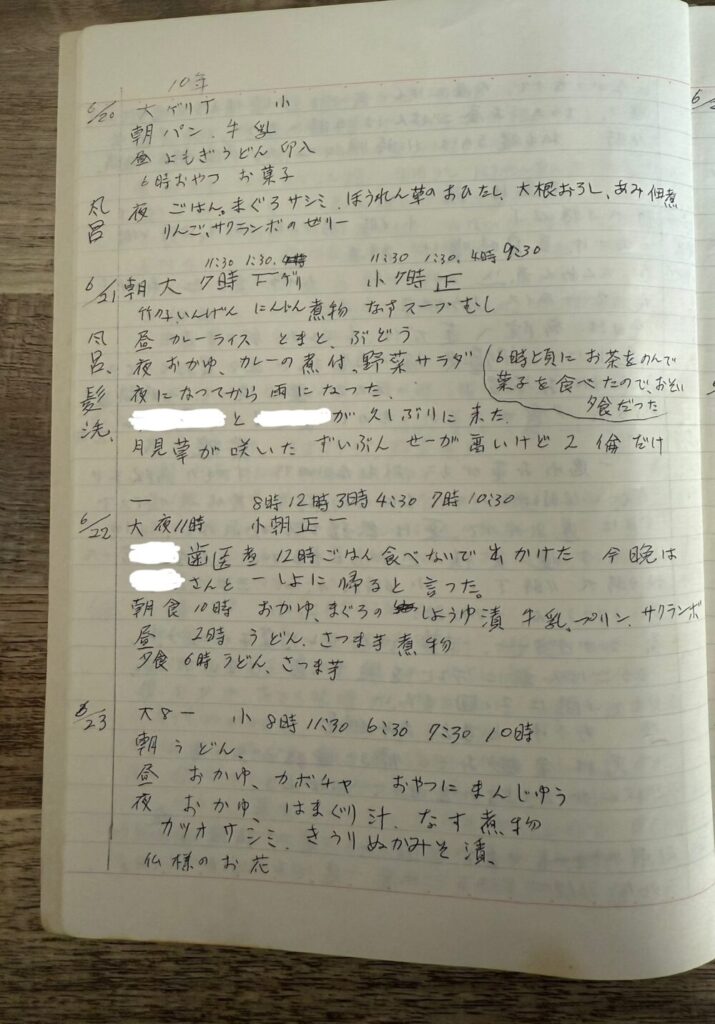 10年
6/20 大 ゲリ丁 小
朝 パン、牛乳
昼 よもぎうどん 卵入
6時おやつ お菓子
風呂 夜 ごはん。まぐろサシミ、ほうれん草のおひたし、大根おろし、あみ佃煮
りんご、サクランボのゼリー
11:30 1:30. 4時 11:30 1:30. 4時 9:30
6/21 朝 大 7時 下ゲリ 小 7時 正
竹の子、いんげん にんじん煮物 なすスープむし
風呂、髪洗、 昼 カレーライス とまと、ぶどう
夜 おかゆ、カレーの煮付、野菜サラダ
6時頃に お茶をのんで
菓子を食べたので、おそい
夕食だった
夜になってから雨になった、
と が久しぶりに来た、
月見草が咲いた ずいぶん せーが高いけど 2 倫だけ
一 8時 12時 3時 4:30 7時 10:30
6/22 大 夜11時 小 朝 正一
歯医者 12時ごはん食べないで出かけた 今晩は
さんと一しょに帰ると言った。
朝食10時 おかゆ、まぐろの しょうゆ漬 牛乳、プリン、サクランボ
昼 2時 うどん、さつま芋煮物
夕食 6時うどん、さつま芋
6/23 大8一 小 8時 11:30 6:30 7:30 10時
朝 うどん、
昼 おかゆ、カボチャ おやつに まんじゆう
夜 おかゆ、はまぐり汁、なす煮物
カツオサシミ、きうりぬかみそ漬、
仏様のお花